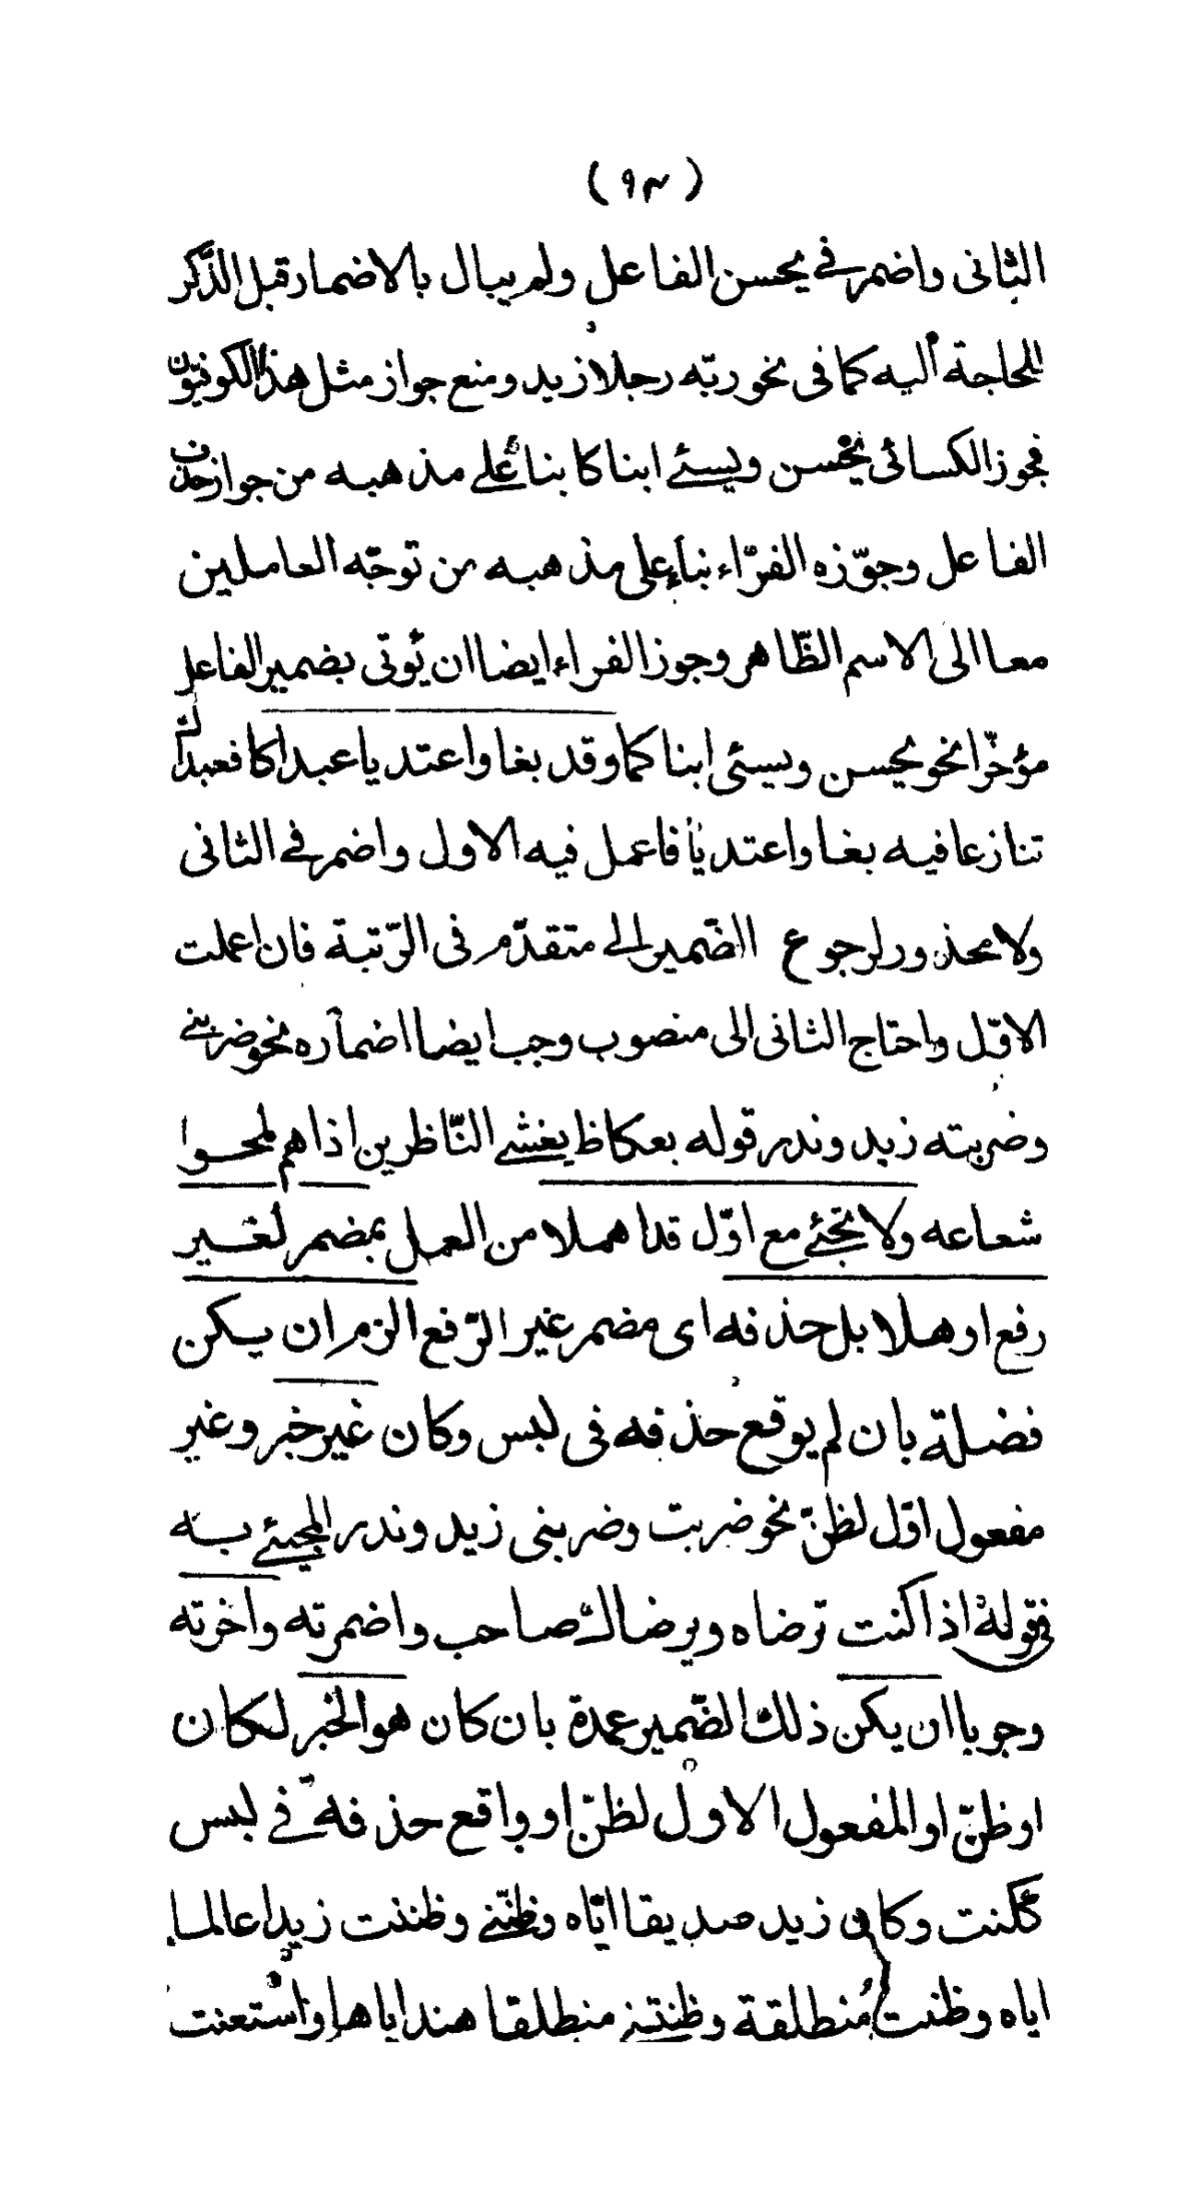 (٩٣)
الثانى واضمر فى يحسن الفاعل ولم يبال بالاضمار قبل الذكر
للحاجة اليه كما فى نحو ربّه رجلا زيد ومنع جواز مثل هذا الكوفيّون
فجوز الكسائى يحسن ويسئ ابناكا بناء على مذهبه من جواز حذف
الفاعل وجوّزه الفرّاء بناء على مذهبه من توجّه العاملين
معا الى الاسم الظّاهر وجوز الفراء ايضا ان يؤتى بضمير الفاعل
مؤخّرا نحو يحسن ويسئى ابناكما وقد بغا واعتديا عبداكا فعبداك
تنازعا فيه بغا واعتديا فاعمل فيه الاول واضمر فى الثانى
ولا محذور لرجوع الضّمير الى متقدّم فى الرّتبة فان اعملت
الاوّل واحتاج الثانى الى منصوب وجب ايضا اضماره نحو ضربنى
وضربته زيد وندر قوله بعكاظ يغشى النّاظرين اذا هم لمحوا
شعاعه ولا تجئ مع اوّل قد اهملا من العمل بمضمر لغير
رفع اوهلا بل حذفه اى مضمر غير الرّفع الزم ان يكن
فضلة بان لم يوقع حذفه فى لبس وكان غير خبر وغير
مفعول اوّل لظنّ نحو ضربت وضربنى زيد وندر المجئ به
فى قوله اذا كنت ترضاه ويرضاك صاحب واضمرته واخرته
وجوبا ان يكن ذلك الضّمير عمدة بان كان هو الخبر لكان
او ظنّ او المفعول الاول لظنّ او واقع حذفه فى لبس
ككنت وكان زيد صديقا ايّاه وظنّنى وظننت زيدا عالما
اياه وظننت منطلقة وظنتنى منطلقا هند اياها واستعنت